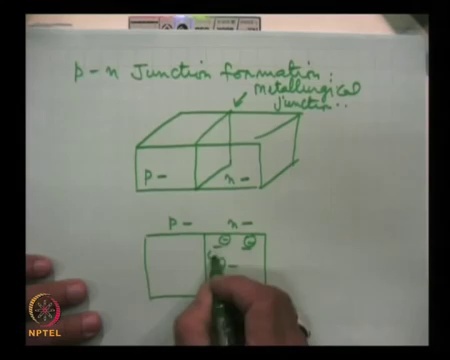 p - n Junction formation :
metallurgical
junction..
p - n -
p - n -
NPTEL